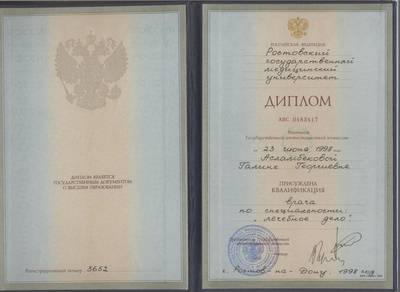 ДИПЛОМ ЯВЛЯЕТСЯ
ГОСУДАРСТВЕННЫМ ДОКУМЕНТОМ
О ВЫСШЕМ ОБРАЗОВАНИИ
Регистрационный номер 3652
РОССИЙСКАЯ ФЕДЕРАЦИЯ
Ростовский
государственный
медицинский
университет
ДИПЛОМ
АВС 0483417
Решением
Государственной аттестационной комиссии
от 23 июня 1998 г.
Асламбековой
Галине Георгиевне
ПРИСУЖДЕНА
КВАЛИФИКАЦИЯ
врача
по специальности:
„лечебное дело"
Председатель Государственной
аттестационной комиссии
г. Ростов-на-Дону, 1998 год